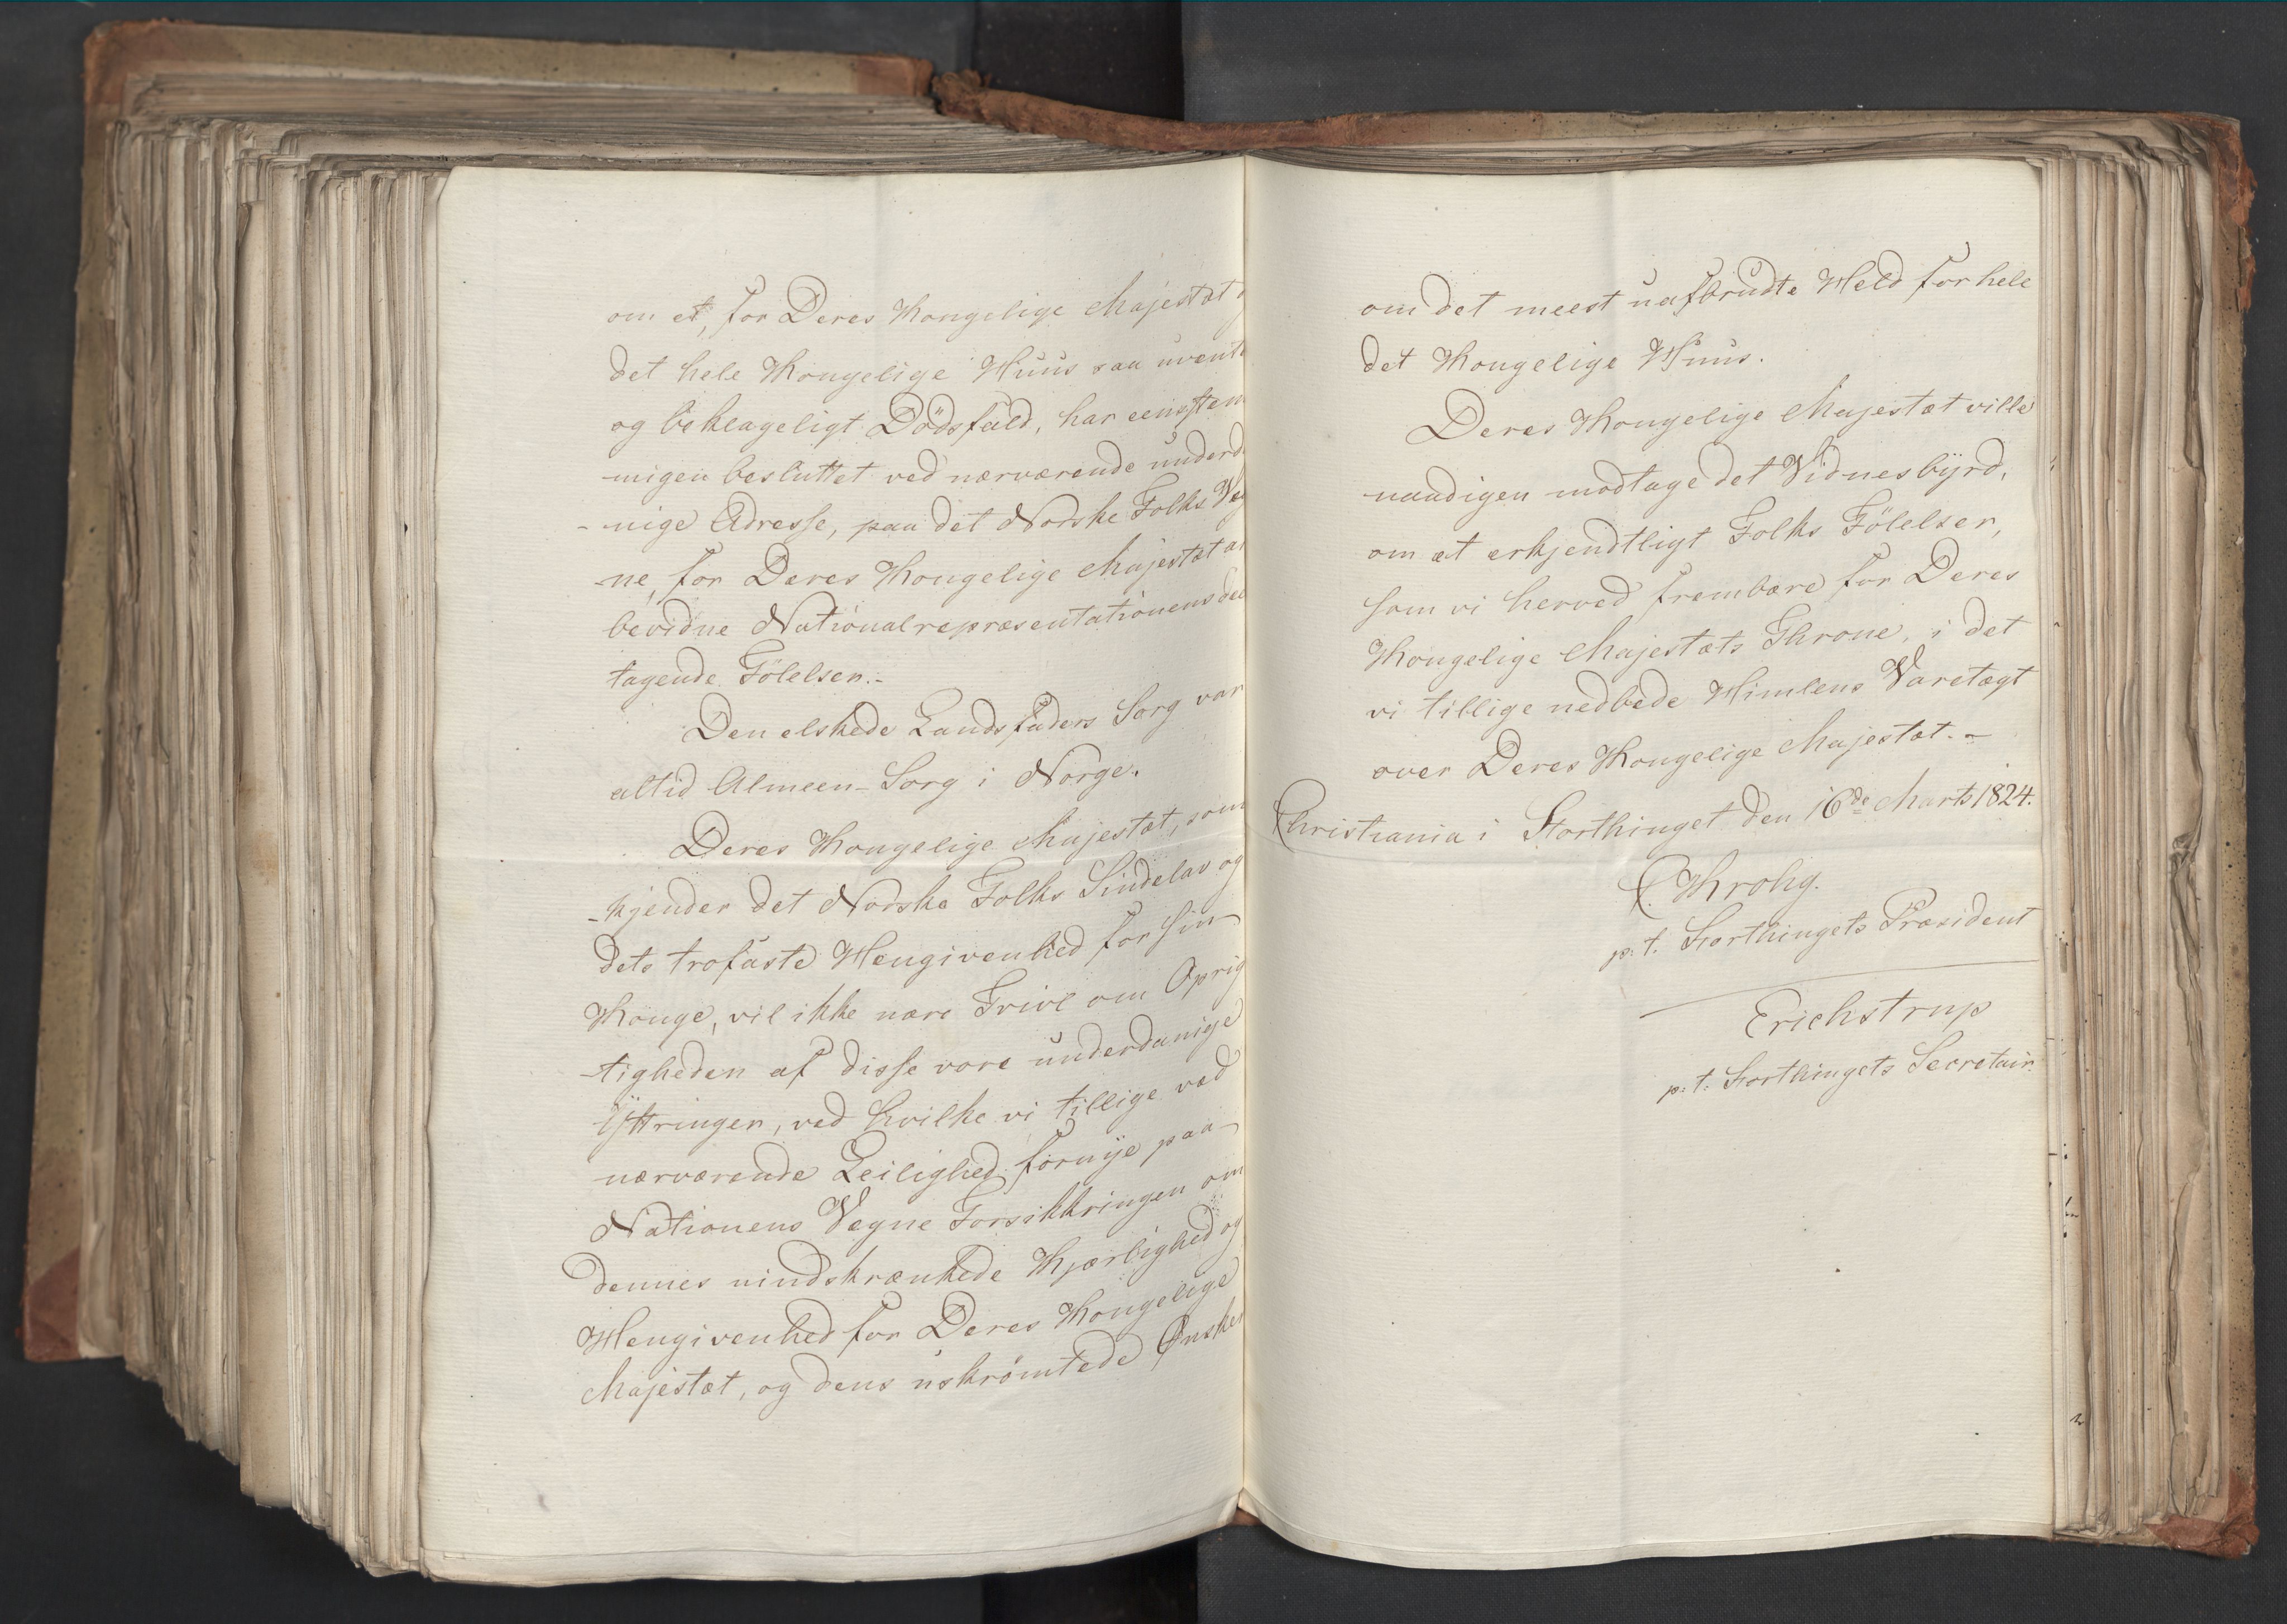 om et, for Deres Kongelige Majestæt
det hele Kongelige Huus saa uvent
og beklageligt Dödsfald, har eenstem
migen besluttet ved nærværende underd
-nige Adresse, paa det Norske Folks Væg
-ne, for Deres Kongelige Majestæt at
bevidne Nationalrepræsentationens deel
tagende Fölelser.-
Den elskede Landsfaders Sorg var
altid Almeen-Sorg i Norge.
Deres Kongelige Majestæt, som
-kjender det Norske Folks Sindelav og
dets trofaste Hengivenhed for sin
Konge, vil ikke nære Tvivl om Oprig
-tigheden af disse vore underdanige
Yttringer, ved hvilke vi tillige ved
nærværende Leilighed fornÿe paa
Nationens Vegne Forsikkringen om
dennes uindskrænkede Kjærlighed og
Hengivenhed for Deres Kongelige
Majestæt, og dens uskrömtede Ønsker
om det meest uafbrudte Held for hele
det Kongelige Huus.
Deres Kongelige Majestæt ville
naadigen modtage det Vidnesbÿrd,
om et erkjendtligt Folks Fölelser,
som vi herved frembære for Deres
Kongelige Majestæts Throne, i det
vi tillige nedbede Himlens Varetægt
over Deres Kongelige Majestæt.-
Christiania i Storthinget den 16de Marts 1824.
C. Krohg.
p. t. Storthingets Præsident
Erichstrup
p: t: Storthingets Secretair.